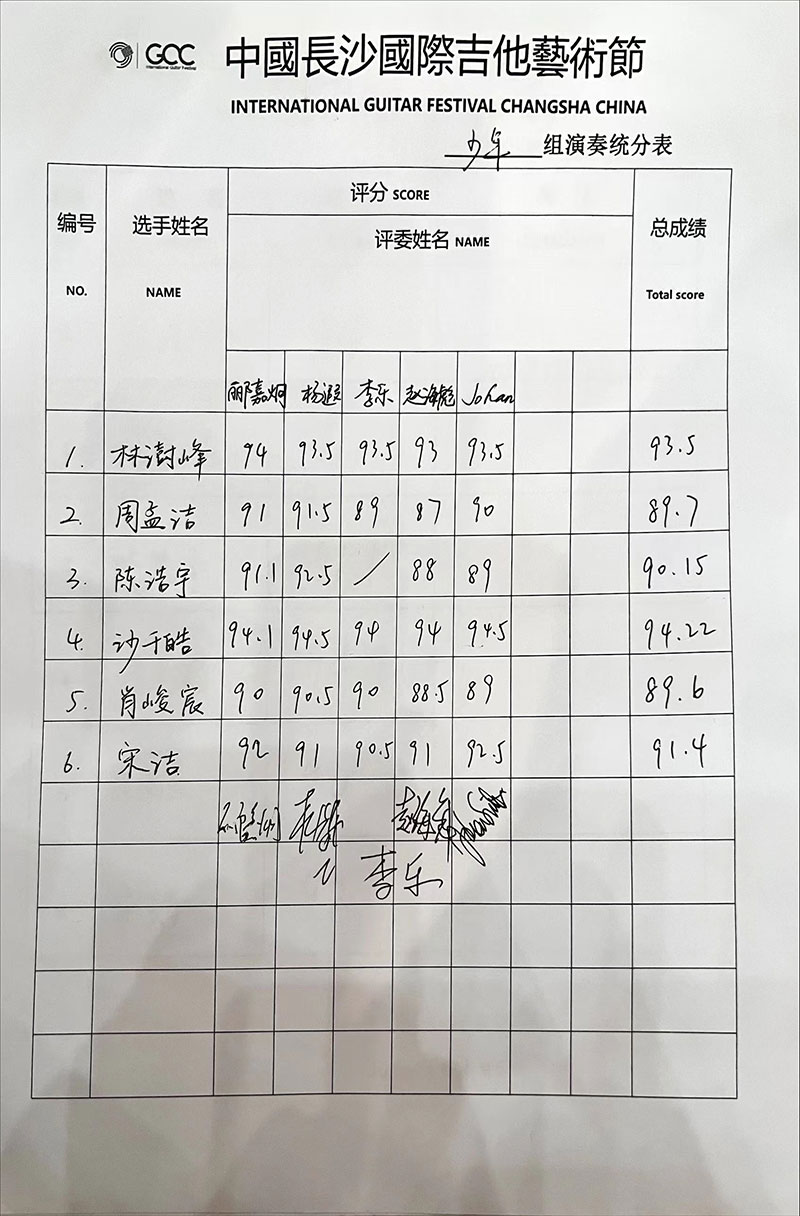 GCC 中國長沙國際吉他藝術節
International Guitar Festival
INTERNATIONAL GUITAR FESTIVAL CHANGSHA CHINA
少年 组演奏统分表
编号 选手姓名 评分 SCORE 总成绩
评委姓名 NAME
NO. NAME Total score
郦嘉炯 杨遐 李乐 赵海彪 Johan
1. 林澍峰 94 93.5 93.5 93 93.5 93.5
2. 周孟洁 91 91.5 89 87 90 89.7
3. 陈浩宇 91.1 92.5 / 88 89 90.15
4. 沙千皓 94.1 94.5 94 94 94.5 94.22
5. 肖峻宸 90 90.5 90 88.5 89 89.6
6. 宋洁 92 91 90.5 91 92.5 91.4
李乐